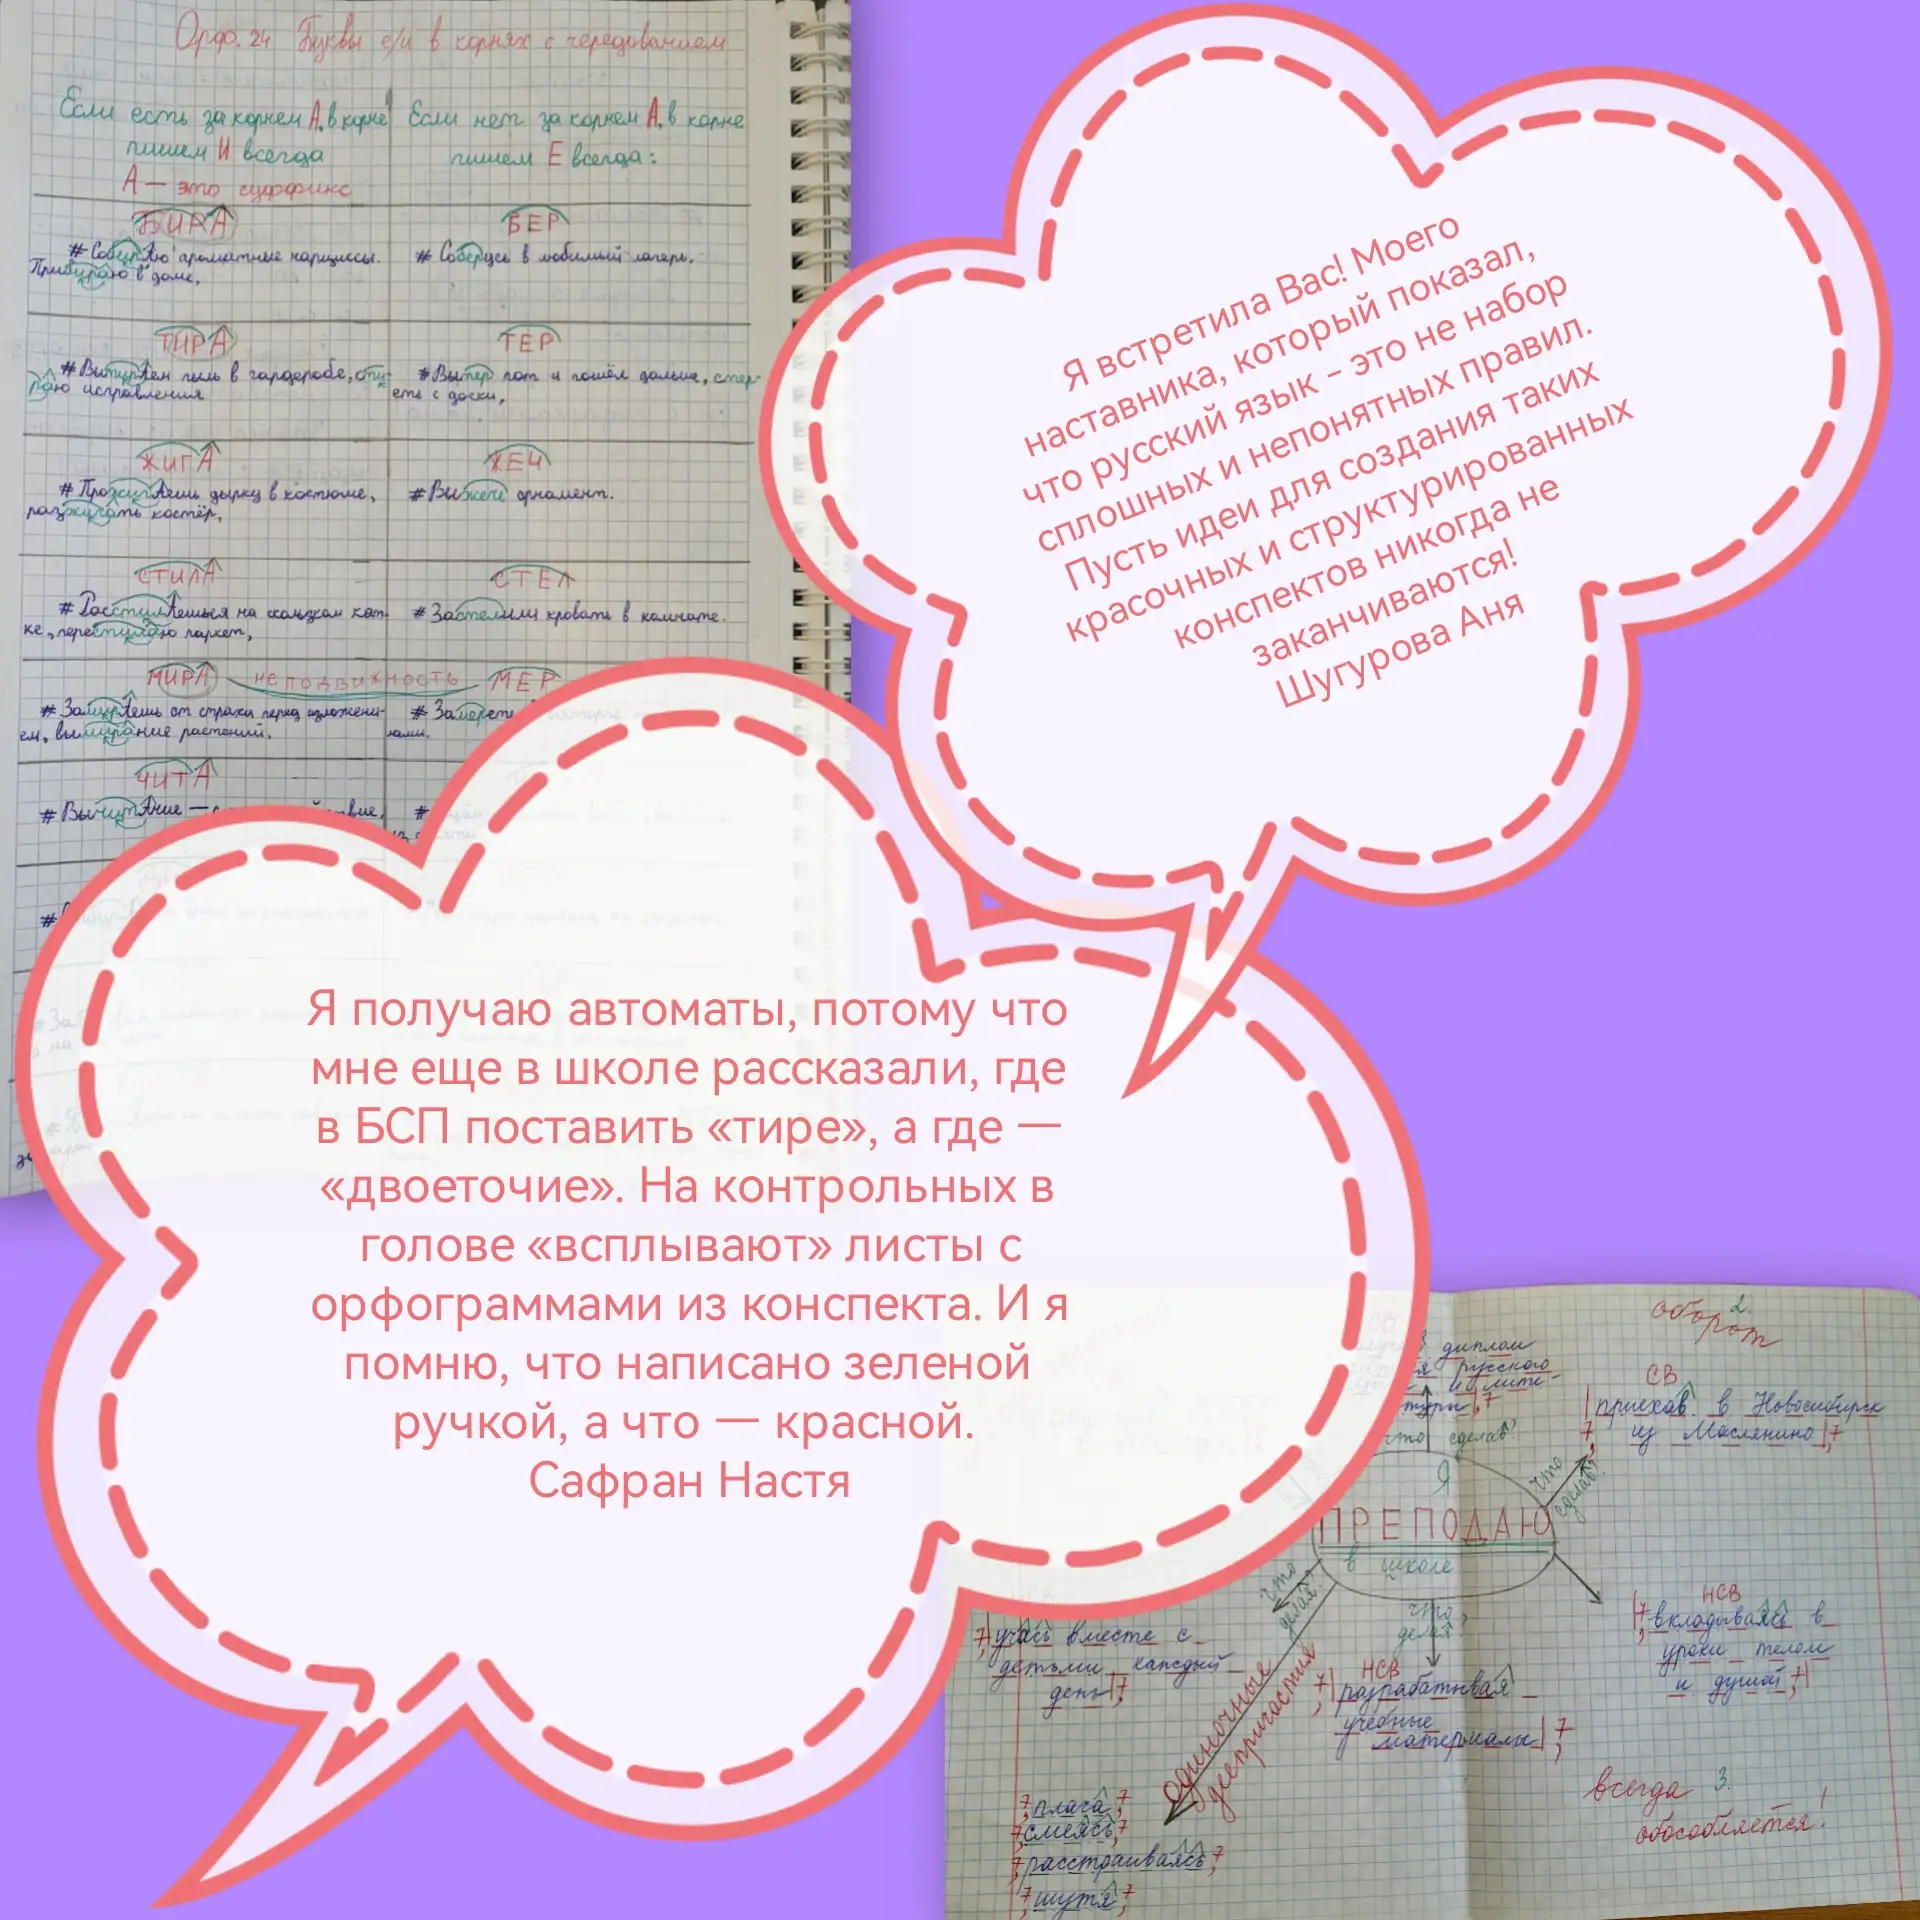 Орф. 24 Буквы е/и в корнях с чередованием
Если есть за корнем А, в корне
пишем И всегда
А — это суффикс
Если нет за корнем А, в корне
пишем Е всегда:
БИРА
# СобирАю ароматные нарциссы.
Прибираю в доме,
БЕР
# Соберусь в любимый лагерь.
ТИРА
# ВытирАем пыль в гардеробе, сти-
раю исправления
ТЕР
# Вытер пот и пошёл дальше, стер-
еть с доски,
ЖИГА
# ПрожигАешь дырку в костюме,
разжигать костёр,
ЖЕЧ
# Выжечь орнамент.
СТИЛА
# РасстилАешься на скользком кат-
ке, перестилаю паркет,
СТЕЛ
# Застелили кровать в комнате.
МИРА
НЕПОДВИЖНОСТЬ
МЕР
# ЗамирАешь от страха перед изложени-
ем, вымирание растений.
# Замереть
ЧИТА
# ВычитАние —
Я встретила Вас! Моего
наставника, который показал,
что русский язык - это не набор
сплошных и непонятных правил.
Пусть идеи для создания таких
красочных и структурированных
конспектов никогда не
заканчиваются!
Шугурова Аня
Я получаю автоматы, потому что
мне еще в школе рассказали, где
в БСП поставить «тире», а где —
«двоеточие». На контрольных в
голове «всплывают» листы с
орфограммами из конспекта. И я
помню, что написано зеленой
ручкой, а что — красной.
Сафран Настя
2.
оборот
диплом
русского
что сделав?
СВ
|приехав в Новосибирск
из Маслянино|,
что
сделав?
Я
ПРЕПОДАЮ
в школе
что
делая?
что
делая?
НСВ
|,вкладываясь в
уроки телом
и душой,|
|учась вместе с
детьми каждый
день|,
НСВ
|разрабатывая
учебные
материалы|,
одиночные
деепричастия
,плача,
,смеясь,
,расстраиваясь,
,шутя,
всегда 3.
обособляется!